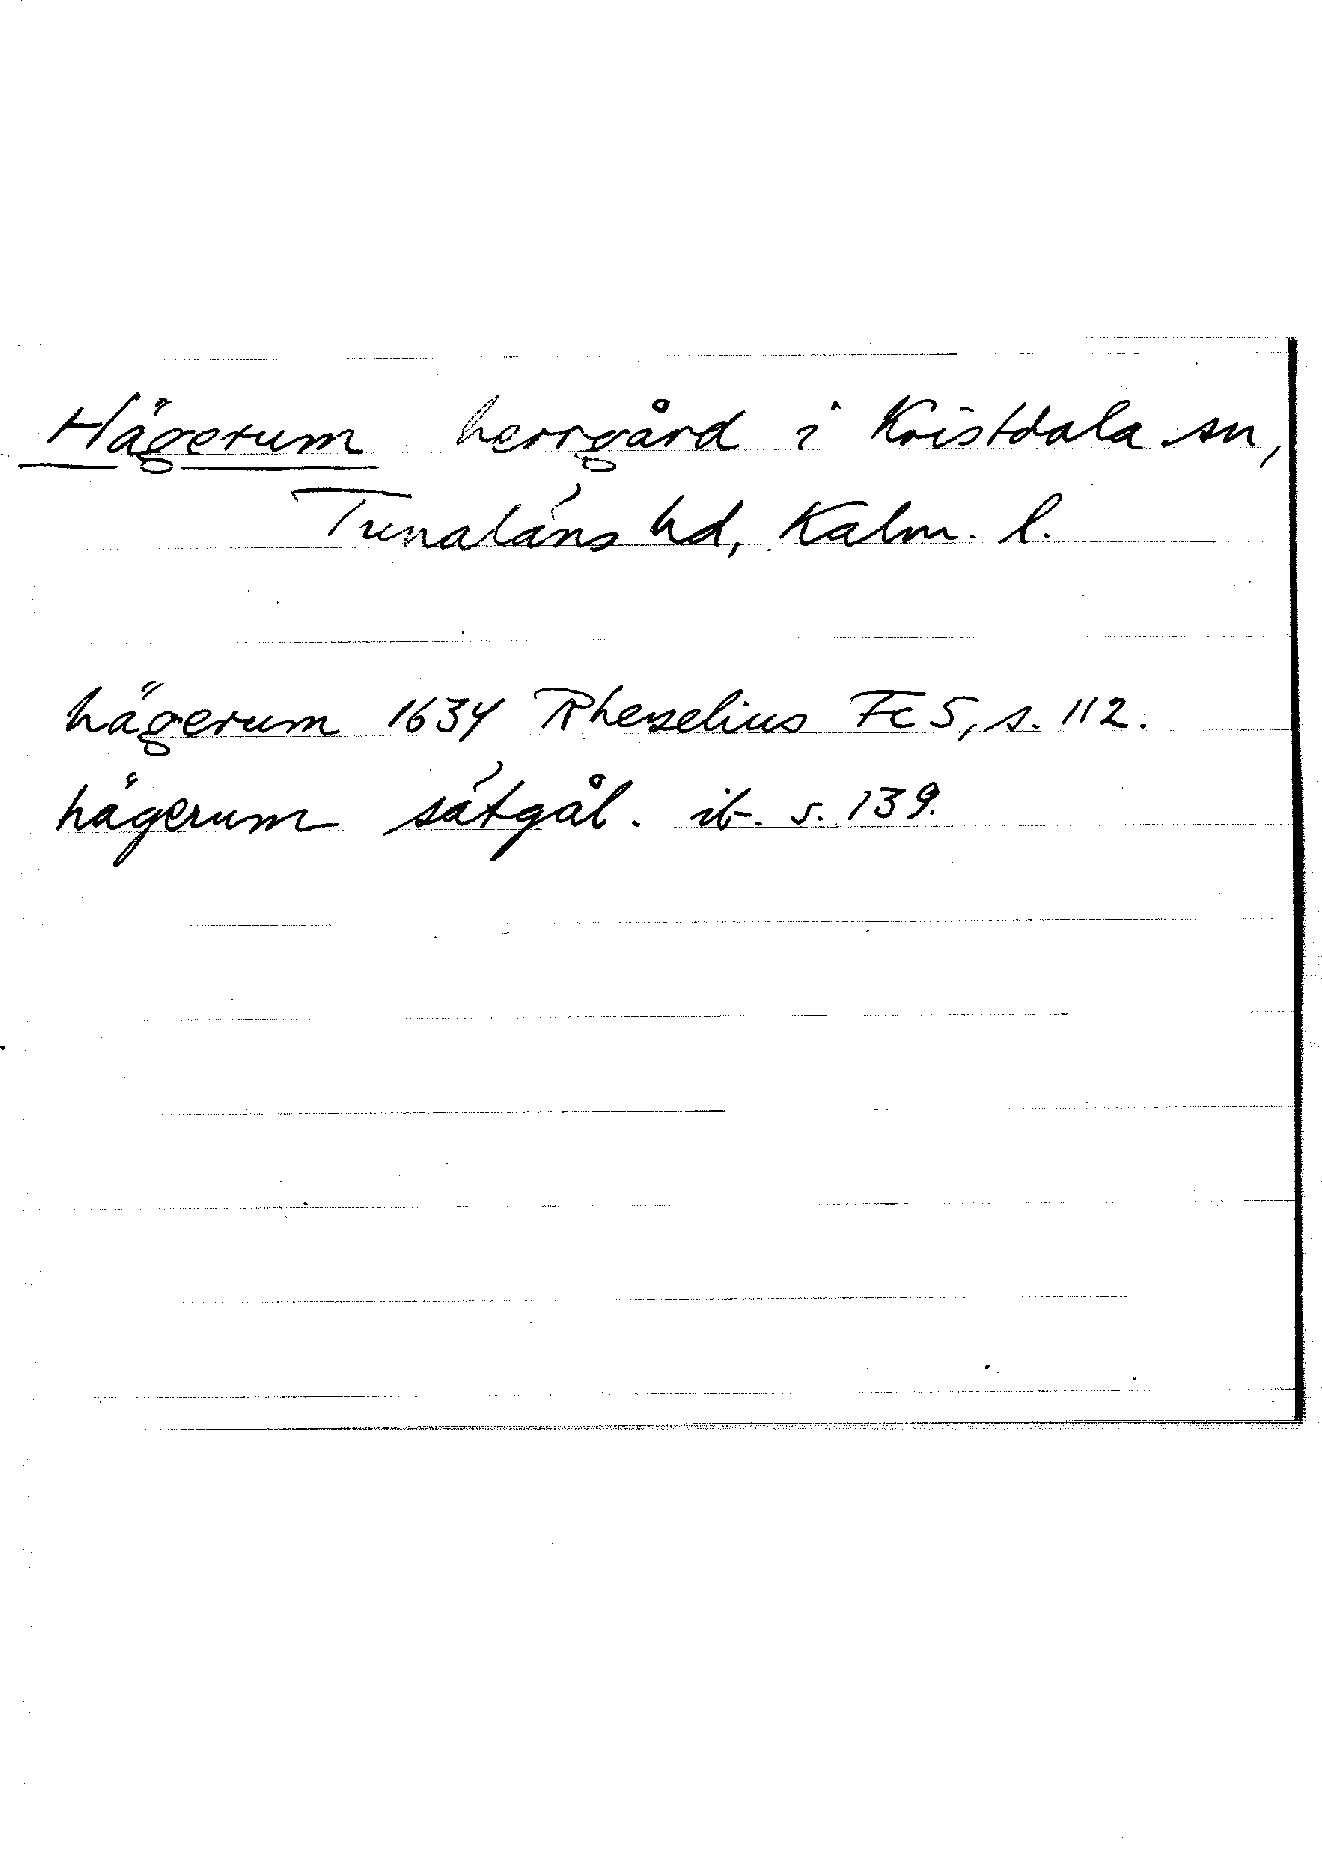 Hägerum herrgård i Kristdala sn,
Tunaläns hd, Kalm. l.
hägerum 1634 Rheselius Fc 5, s. 112.
hägerum sätgål. ib. s. 139.